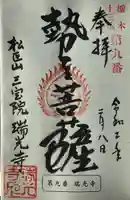 奉拝
第九番
令和二年
二月八日
勢至菩薩
松岳山三宝院瑞光寺
第九番 瑞光寺